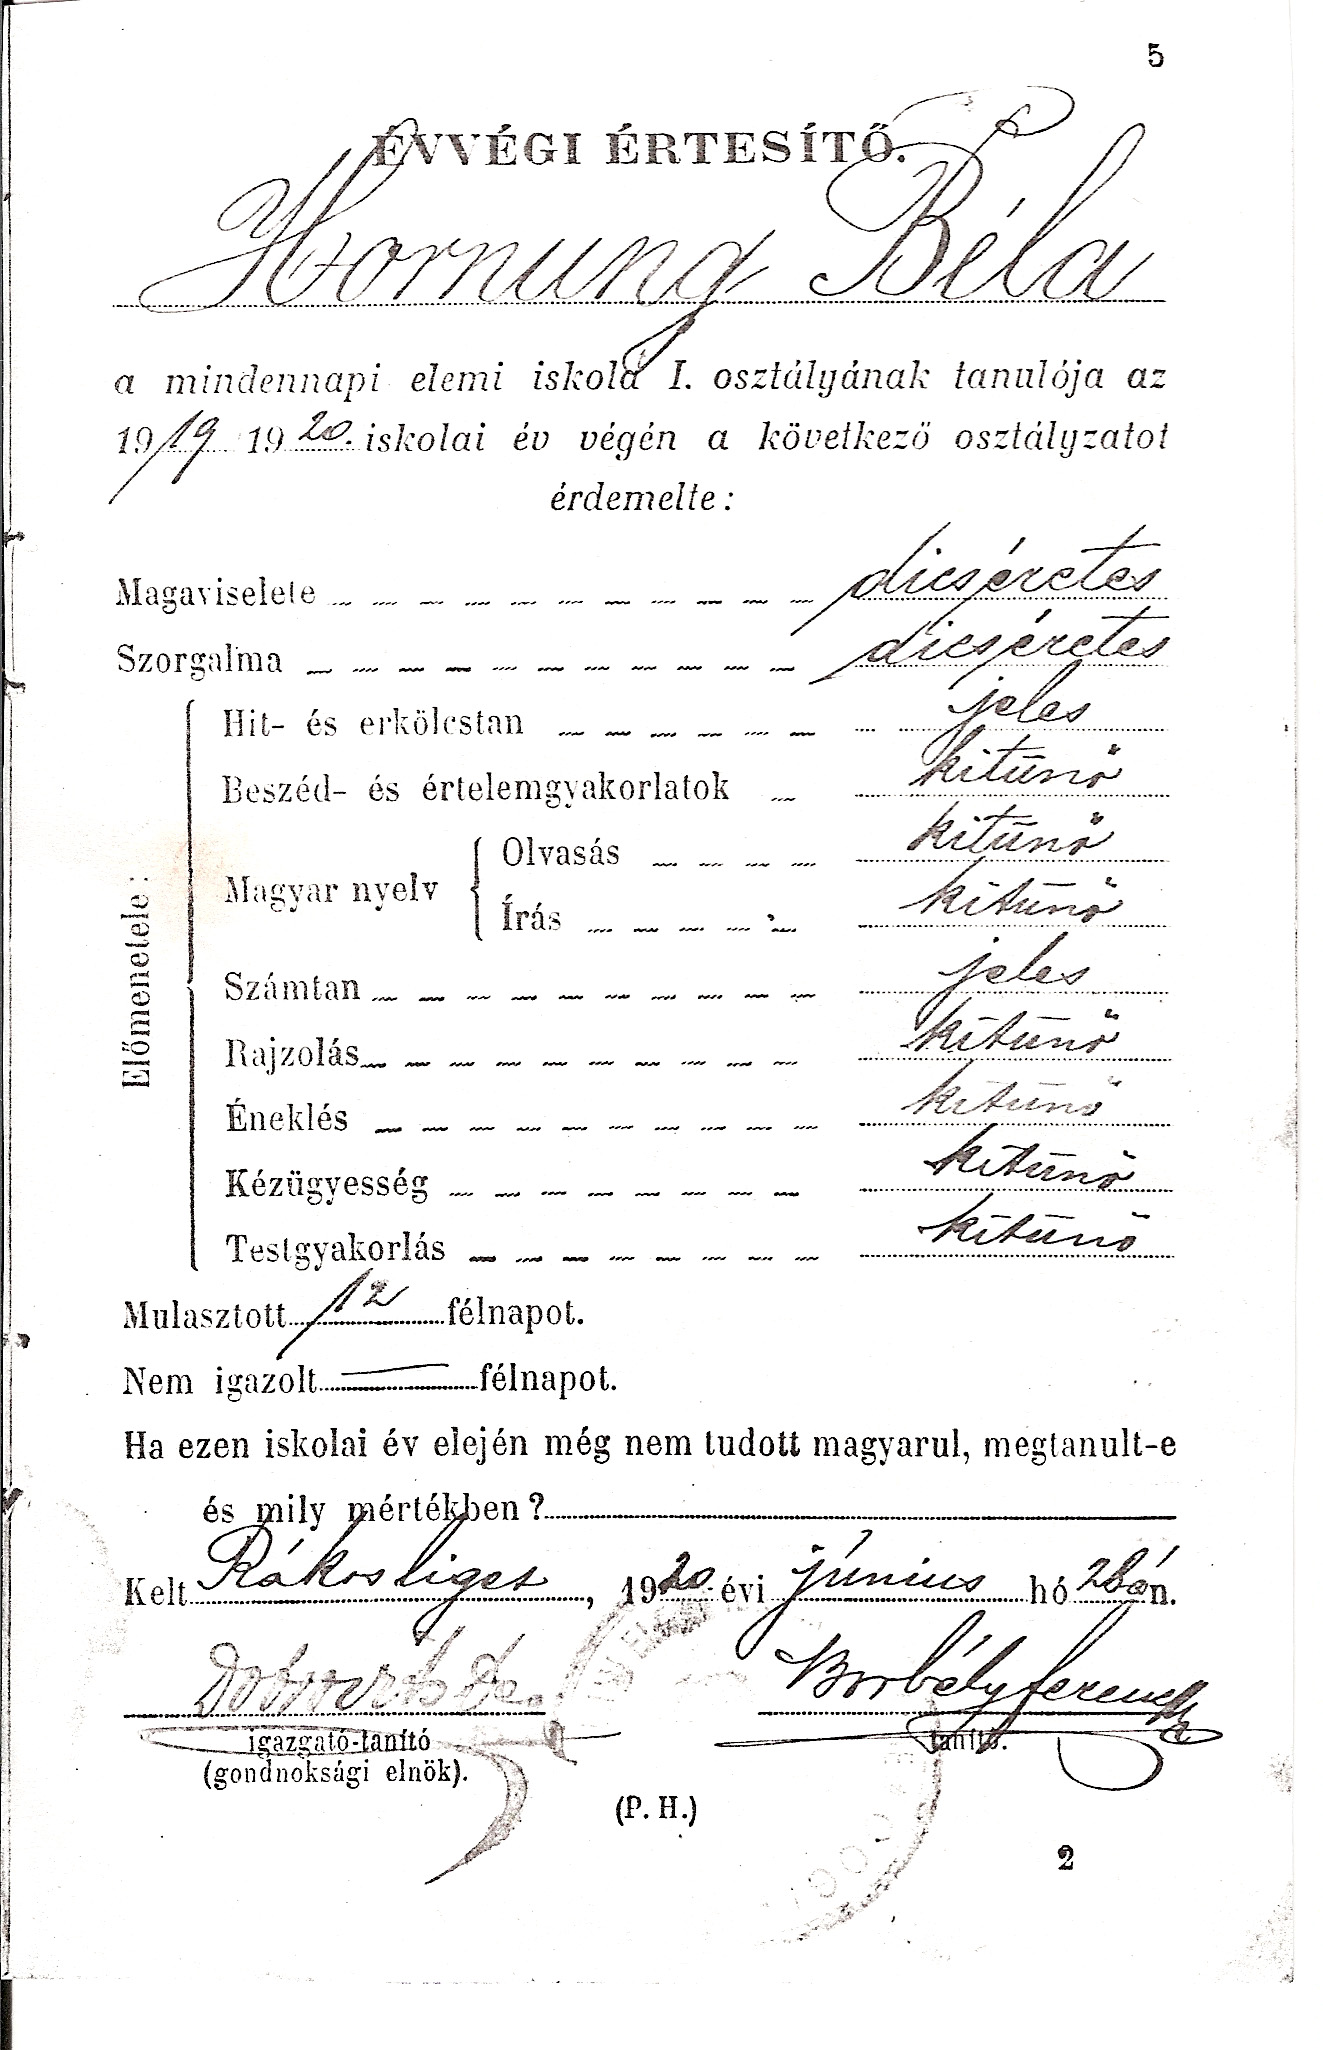 5
ÉVVÉGI ÉRTESÍTŐ.
Hornung Béla
a mindennapi elemi iskola I. osztályának tanulója az
1919 1920. iskolai év végén a következő osztályzatot
érdemelte:
Magaviselete dicséretes
Szorgalma dicséretes
Előmenetele:
Hit- és erkölcstan jeles
Beszéd- és értelemgyakorlatok kitünő
Magyar nyelv
Olvasás kitünő
Írás kitünő
Számtan jeles
Rajzolás kitünő
Éneklés kitünő
Kézügyesség kitünő
Testgyakorlás kitünő
Mulasztott 12 félnapot.
Nem igazolt — félnapot.
Ha ezen iskolai év elején még nem tudott magyarul, megtanult-e
és mily mértékben?
Kelt Rákosliget, 1920 évi június hó 26án.
Borbély Ferenc
igazgató-tanító
tanító.
(gondnoksági elnök).
(P. H.)
2